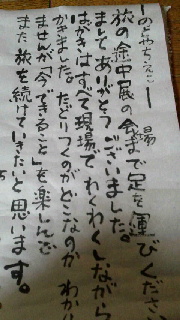 ーのとやちえこー
場
旅の途中展の会場まで足を運びくださ
ましてありがとうございました。
はがきはすべて現場でわくわくしながら
かきました。たどりつくのがどこなのかわかり
ませんが「今できること」を楽しんで
また旅を続けていきたいと思います。